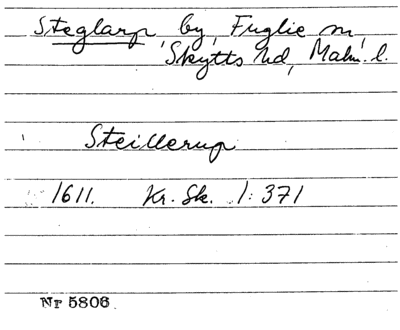 Steglarp, by, Fuglie sn,
Skytts hd, Malm. l.
Steillerup
1611. Kr. Sk. 1: 371
Nr 5806